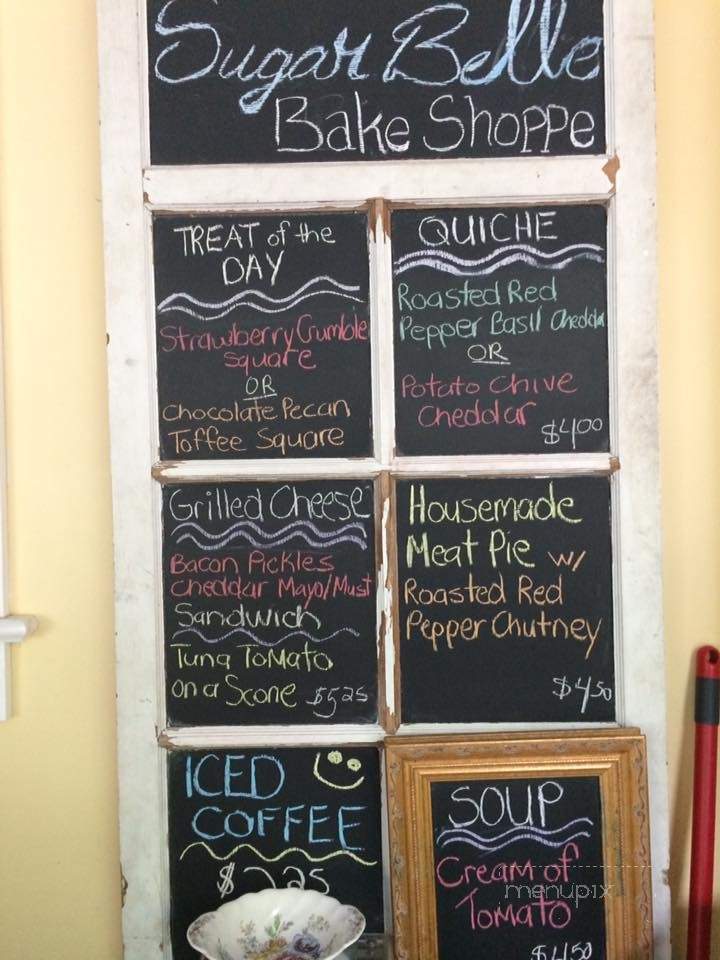 Sugar Belle
Bake Shoppe
TREAT of the
DAY
Strawberry Crumble
Square
OR
Chocolate Pecan
Toffee Square
QUICHE
Roasted Red
Pepper Basil Cheddar
OR
Potato Chive
Cheddar
$4.00
Grilled Cheese
Bacon Pickles
Cheddar Mayo/Must
Sandwich
Tuna Tomato
on a Scone $5.25
Housemade
Meat Pie w/
Roasted Red
Pepper Chutney
$4.50
ICED
COFFEE
$2.25
SOUP
Cream of
Tomato
$4.50
menupix